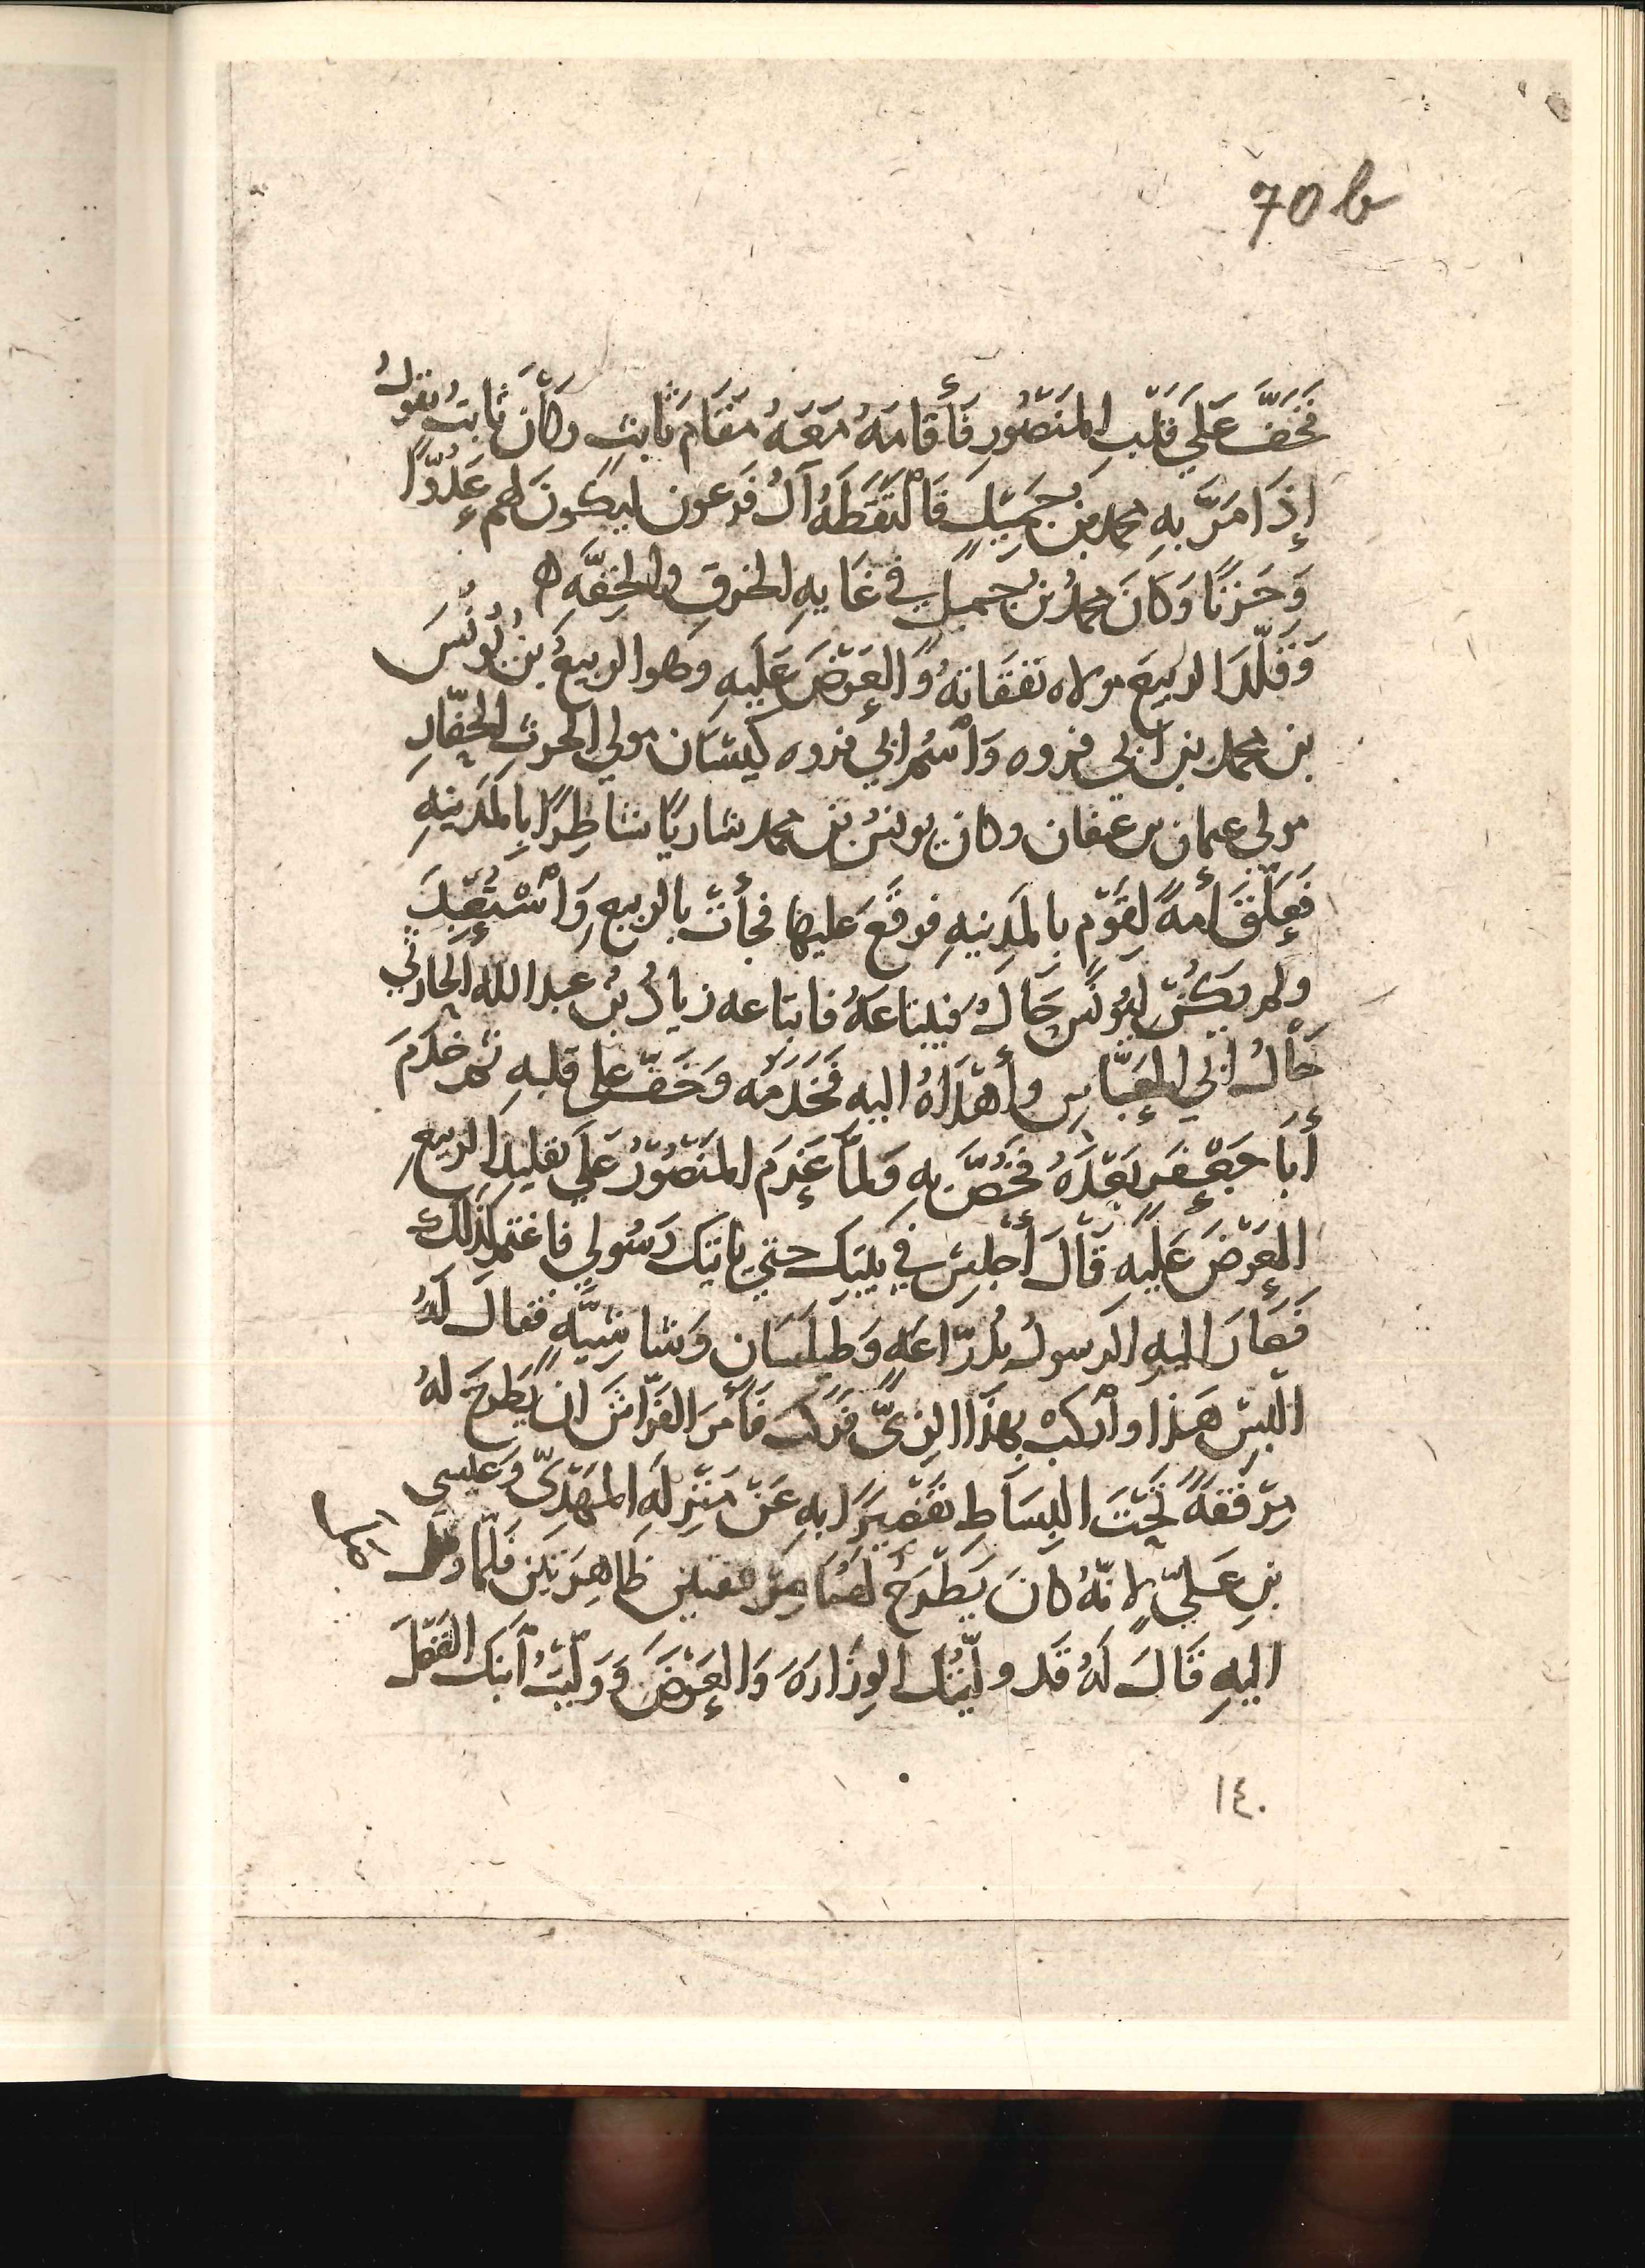 70b
فَخَفَّ عَلَي قَلْبِ المَنصُورِ فَأَقامَهُ مَعَهُ مَقَامَ ثَابِتٍ وَكَانَ ثَابِتُ يَقولُ
إِذَا مَرَّ بِهِ محمد بن جَمِيْلٍ فَالْتَقَطَهُ آلُ فَرعون ليكونَ لهم عَدُوًّا
وَحَزنًا وَكَانَ محمدُ بن جميلٍ في غَايهِ الخرقِ والخِفّهِ ه
وَقَلّدَ الربيعَ مولاه نَفَقَاتهُ وَالعَرْضَ عَلَيهِ وهو الربيعُ بنُ يُونُسَ
بن محمد بن أبي فروه وَاسْمُ ابي فروه كيسَان مولي الحرثِ الحفّارِ
مولي عثمان بن عفان وكان يونسُ بن محمد شاريًا شاطِرًا بِالمَدينهِ
فَعَلّقَ أَمهً لِقَوْمٍ بالمَدينهِ فوقَعَ عَليها فجأت بالربيعِ وَاسْتُعْبِدَ
ولم يَكُنْ ليُونُس حَالٌ فيبتاعَهُ فابتاعه زيادُ بنُ عبد الله الحارثي
خَالُ ابي العَبّاسِ وأَهْدَاهُ اليهِ فَخَدَمَه وَخَفّ علي قلبهِ ثم خدَمَ
أَبَا جَعْفَرٍ بَعْدَهُ فَخُصَّ بِهِ وَلمّا عَزمَ المَنصُورُ عَلَي تقليدِ الربيعِ
العَرْضَ عَلَيهِ قَالَ أجلِسْ في بيتِكَ حتي ياتيك رَسُولي فاغتم لِذَلكَ
فَصَارَ اليهِ الرسولُ بدُرّاعَهٍ وَطيلسَان وَشاشيَّهٍ فقالَ لَهُ
البَسْ هَذا واركبْ بِهذَا الزيِّ فركب فَأَمرَ الفرّاشَ ان يَطرحَ لهُ
مِرْفَقهً تَحْتَ البِسَاطِ تَقصِيرًا بهِ عَنْ مَنْزِلَهِ المَهْدِيّ وَعيسي
بنِ عَليٍّ لانّهُ كانَ يَطْرَحُ لَهُمَا مرفقتين ظَاهِرَتين فلمّا وصل
اليهِ قَالَ لَهُ قَد ولّيتُك الوِزَارَهَ وَالعَرْضَ وَوَلّيْتُ اْبنكَ الفَضْلَ
١٤٠